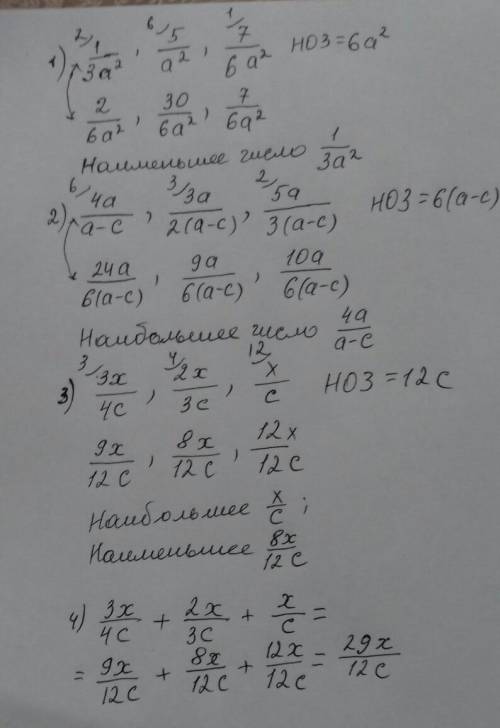 1) 2/ 1/3a², 6/ 5/a², 1/ 7/6a² НОЗ=6a²
2/6a², 30/6a², 7/6a²
Наименьшее число 1/3a²
2) 6/ 4a/a-c, 3/ 3a/2(a-c), 2/ 5a/3(a-c) НОЗ=6(a-c)
24a/6(a-c), 9a/6(a-c), 10a/6(a-c)
Наибольшее число 4a/a-c
3) 3/ 3x/4c, 4/ 2x/3c, 12/ x/c НОЗ=12c
9x/12c, 8x/12c, 12x/12c
Наибольшее x/c;
Наименьшее 8x/12c
4) 3x/4c + 2x/3c + x/c =
= 9x/12c + 8x/12c + 12x/12c = 29x/12c